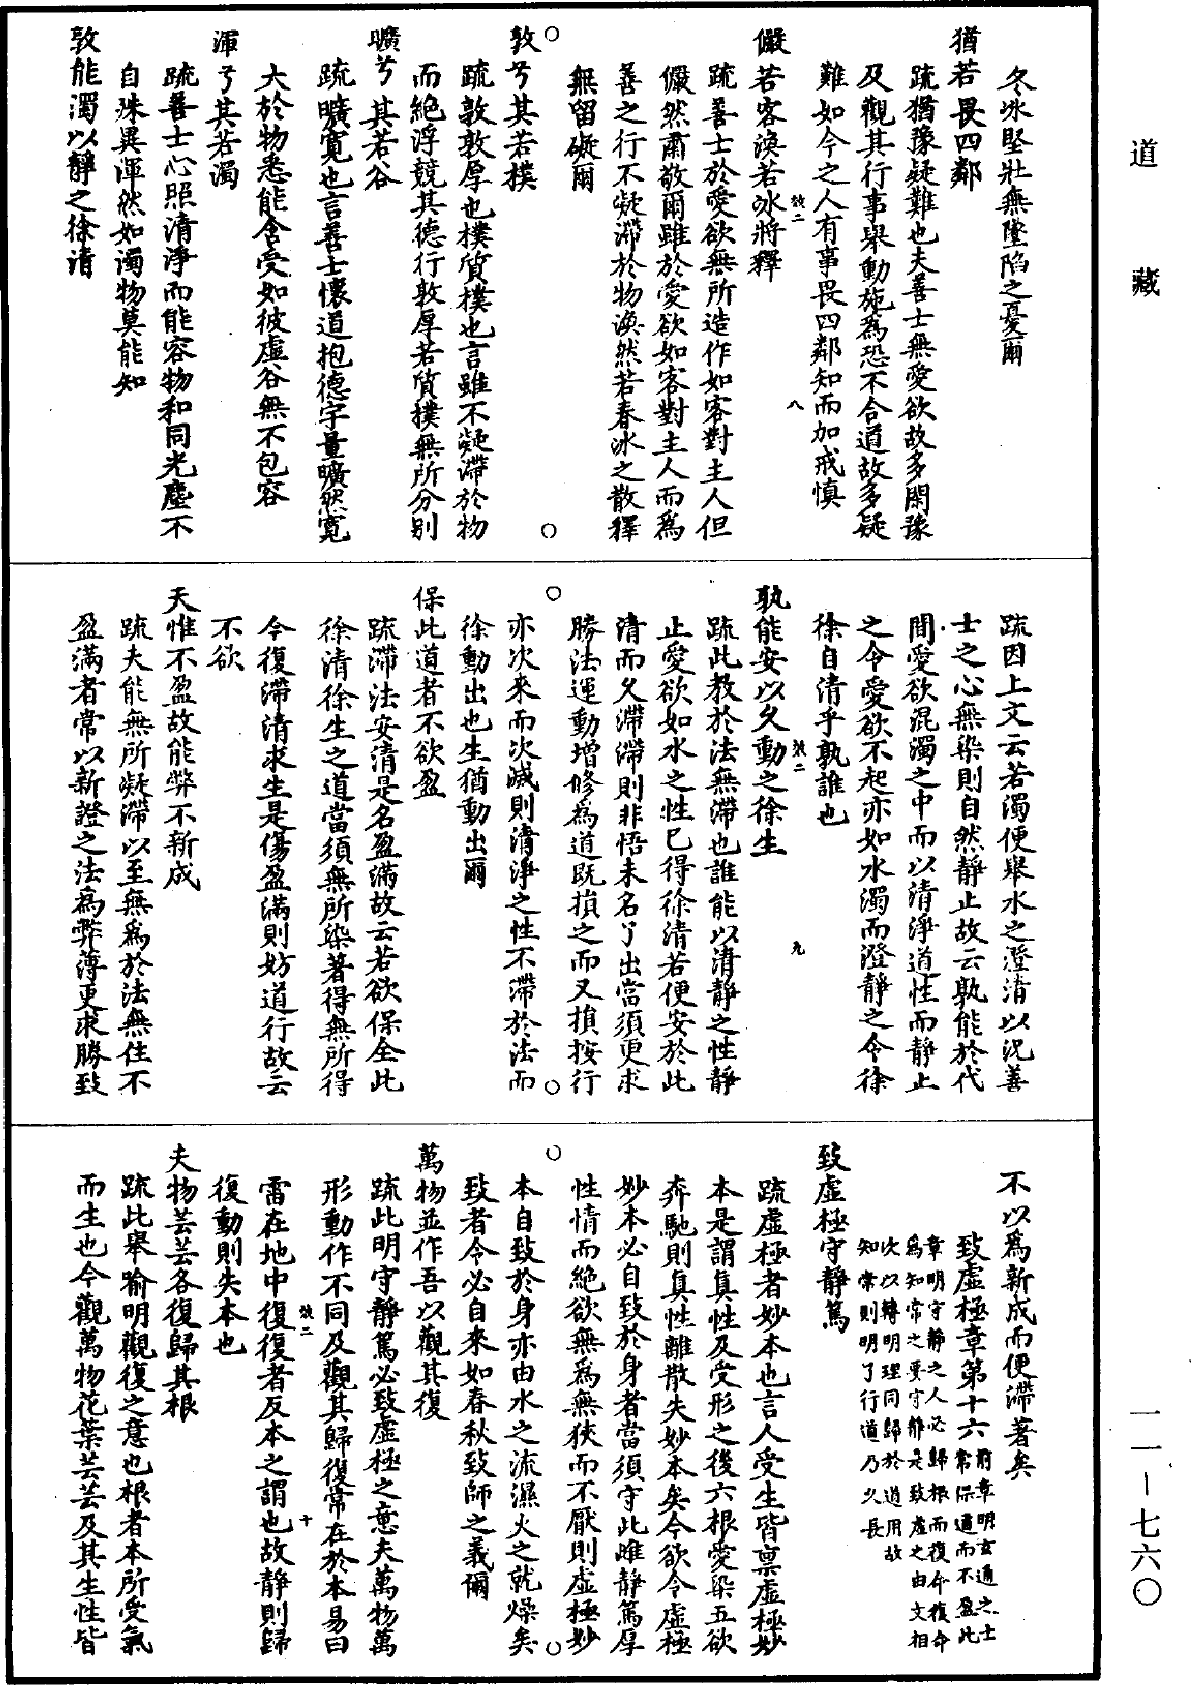 道藏
冬冰堅壯無墜陷之憂爾
猶若畏四鄰
疏猶豫疑難也夫善士無愛欲故多閑豫
及觀其行事舉動施為恐不合道故多疑
難如今之人有事畏四鄰知而加戒慎
效二 八
儼若客渙若冰將釋
疏善士於愛欲無所造作如客對主人但
儼然肅敬爾雖於愛欲如客對主人而為
善之行不凝滯於物渙然若春冰之散釋
無留礙爾
敦兮其若樸
疏敦敦厚也樸質樸也言雖不凝滯於物
而絕浮競其德行敦厚若質樸無所分别
曠兮其若谷
疏曠寬也言善士懷道抱德宇量曠然寬
大於物悉能含受如彼虛谷無不包容
渾兮其若濁
疏善士心照清淨而能容物和同光塵不
自殊異渾然如濁物莫能知
孰能濁以靜之徐清
疏因上文云若濁便舉水之澄清以況善
士之心無染則自然靜止故云孰能於代
間愛欲混濁之中而以清淨道性而靜止
之令愛欲不起亦如水濁而澄靜之令徐
徐自清乎孰誰也
效二 九
孰能安以久動之徐生
疏此教於法無滯也誰能以清靜之性靜
止愛欲如水之性已得徐清若便安於此
清而久滯滯則非悟未名了出當須更求
勝法運動增修為道既損之而又損按行
亦次來而次滅則清淨之性不滯於法而
徐動出也生猶動出爾
保此道者不欲盈
疏滯法安清是名盈滿故云若欲保全此
徐清徐生之道當須無所染著得無所得
今復滯清求生是傷盈滿則妨道行故云
不欲
夫惟不盈故能弊不新成
疏夫能無所凝滯以至無為於法無住不
盈滿者常以新證之法為弊薄更求勝致
不以為新成而便滯著矣
致虛極章第十六前章明玄通之士常保道而不盈此
章明守靜之人必歸根而復命復命
為知常之要守靜是致虛之由文相
次以轉明理同歸於道用故
知常則明了行道乃久長
致虛極守靜篤
疏虛極者妙本也言人受生皆稟虛極妙
本是謂真性及受形之後六根愛染五欲
奔馳則真性離散失妙本矣今欲令虛極
妙本必自致於身者當須守此雌靜篤厚
性情而絕欲無為無狹而不厭則虛極妙
本自致於身亦由水之流濕火之就燥矣
致者令必自來如春秋致師之義爾
萬物並作吾以觀其復
疏此明守靜篤必致虛極之意夫萬物萬
形動作不同及觀其歸復常在於本易曰
效二 十
雷在地中復復者反本之謂也故靜則歸
復動則失本也
夫物芸芸各復歸其根
疏此舉喻明觀復之意也根者本所受氣
而生也今觀萬物花葉芸芸及其生性皆
一一－七六〇